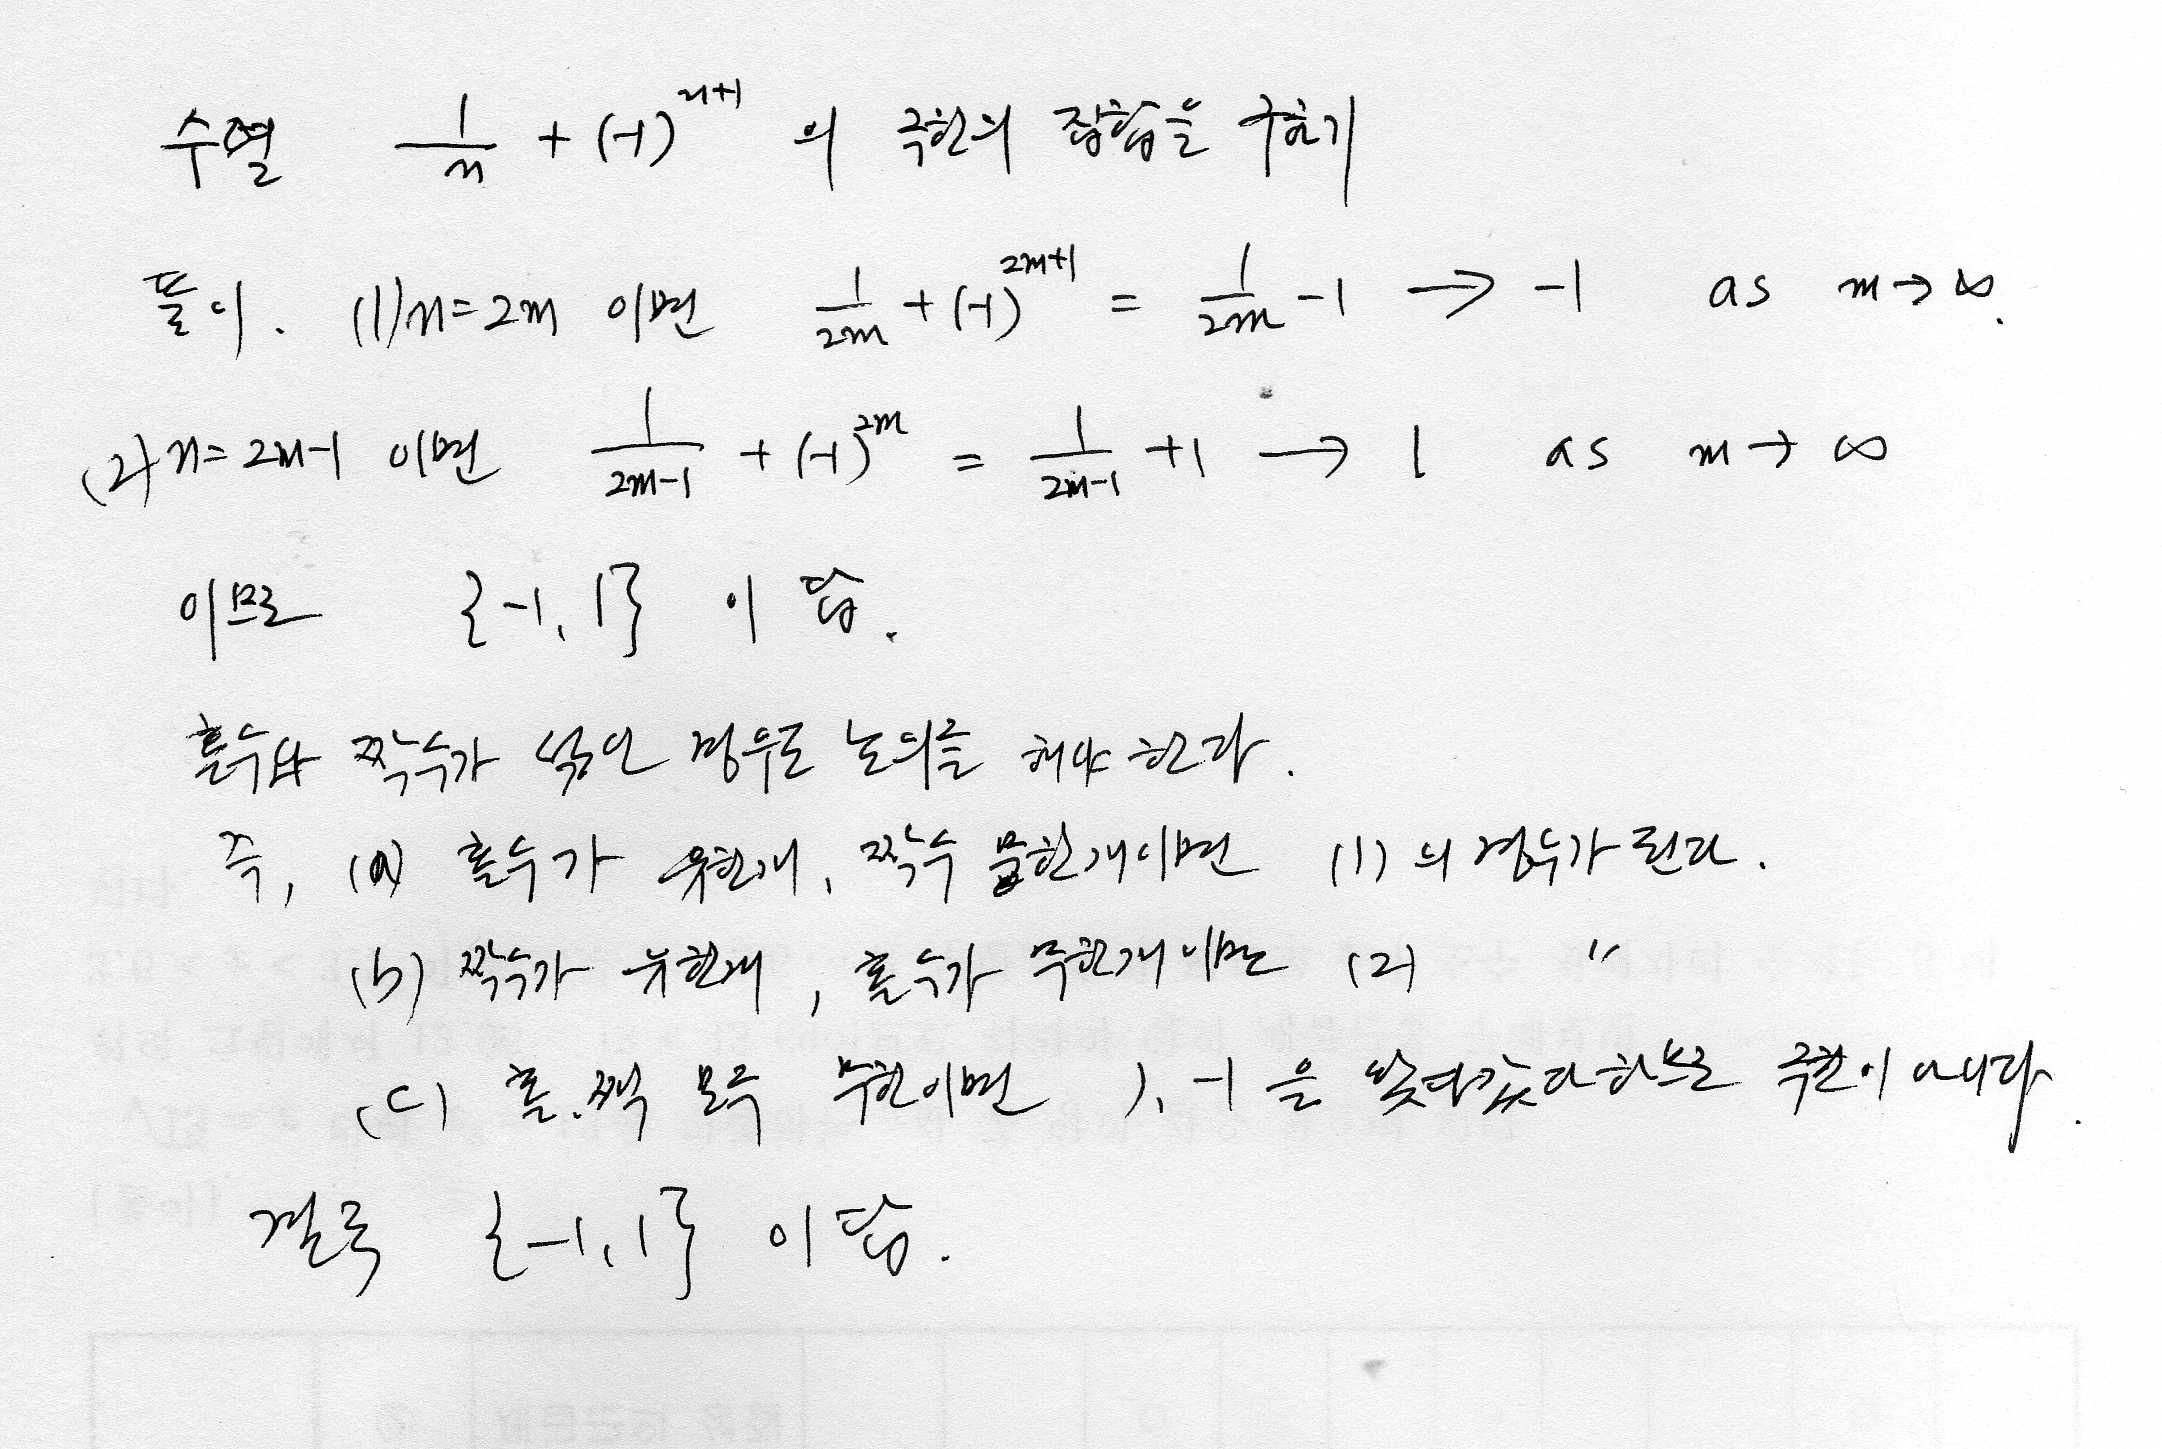 수열 1/n + (-1)^{n+1} 의 극한의 집합을 구하기
풀이. (1) n=2m 이면 1/2m + (-1)^{2m+1} = 1/2m - 1 → -1 as m → ∞.
(2) n=2m-1 이면 1/2m-1 + (-1)^{2m} = 1/2m-1 + 1 → 1 as m → ∞
이므로 {-1, 1} 이 답.
홀수와 짝수가 섞인 경우도 논의를 해야 한다.
즉, (a) 홀수가 유한개, 짝수 무한개이면 (1)의 경우가 된다.
(b) 짝수가 유한개, 홀수가 무한개이면 (2) "
(c) 홀.짝 모두 무한이면 1, -1 을 왔다갔다하므로 극한이 아니다.
결국 {-1, 1} 이 답.